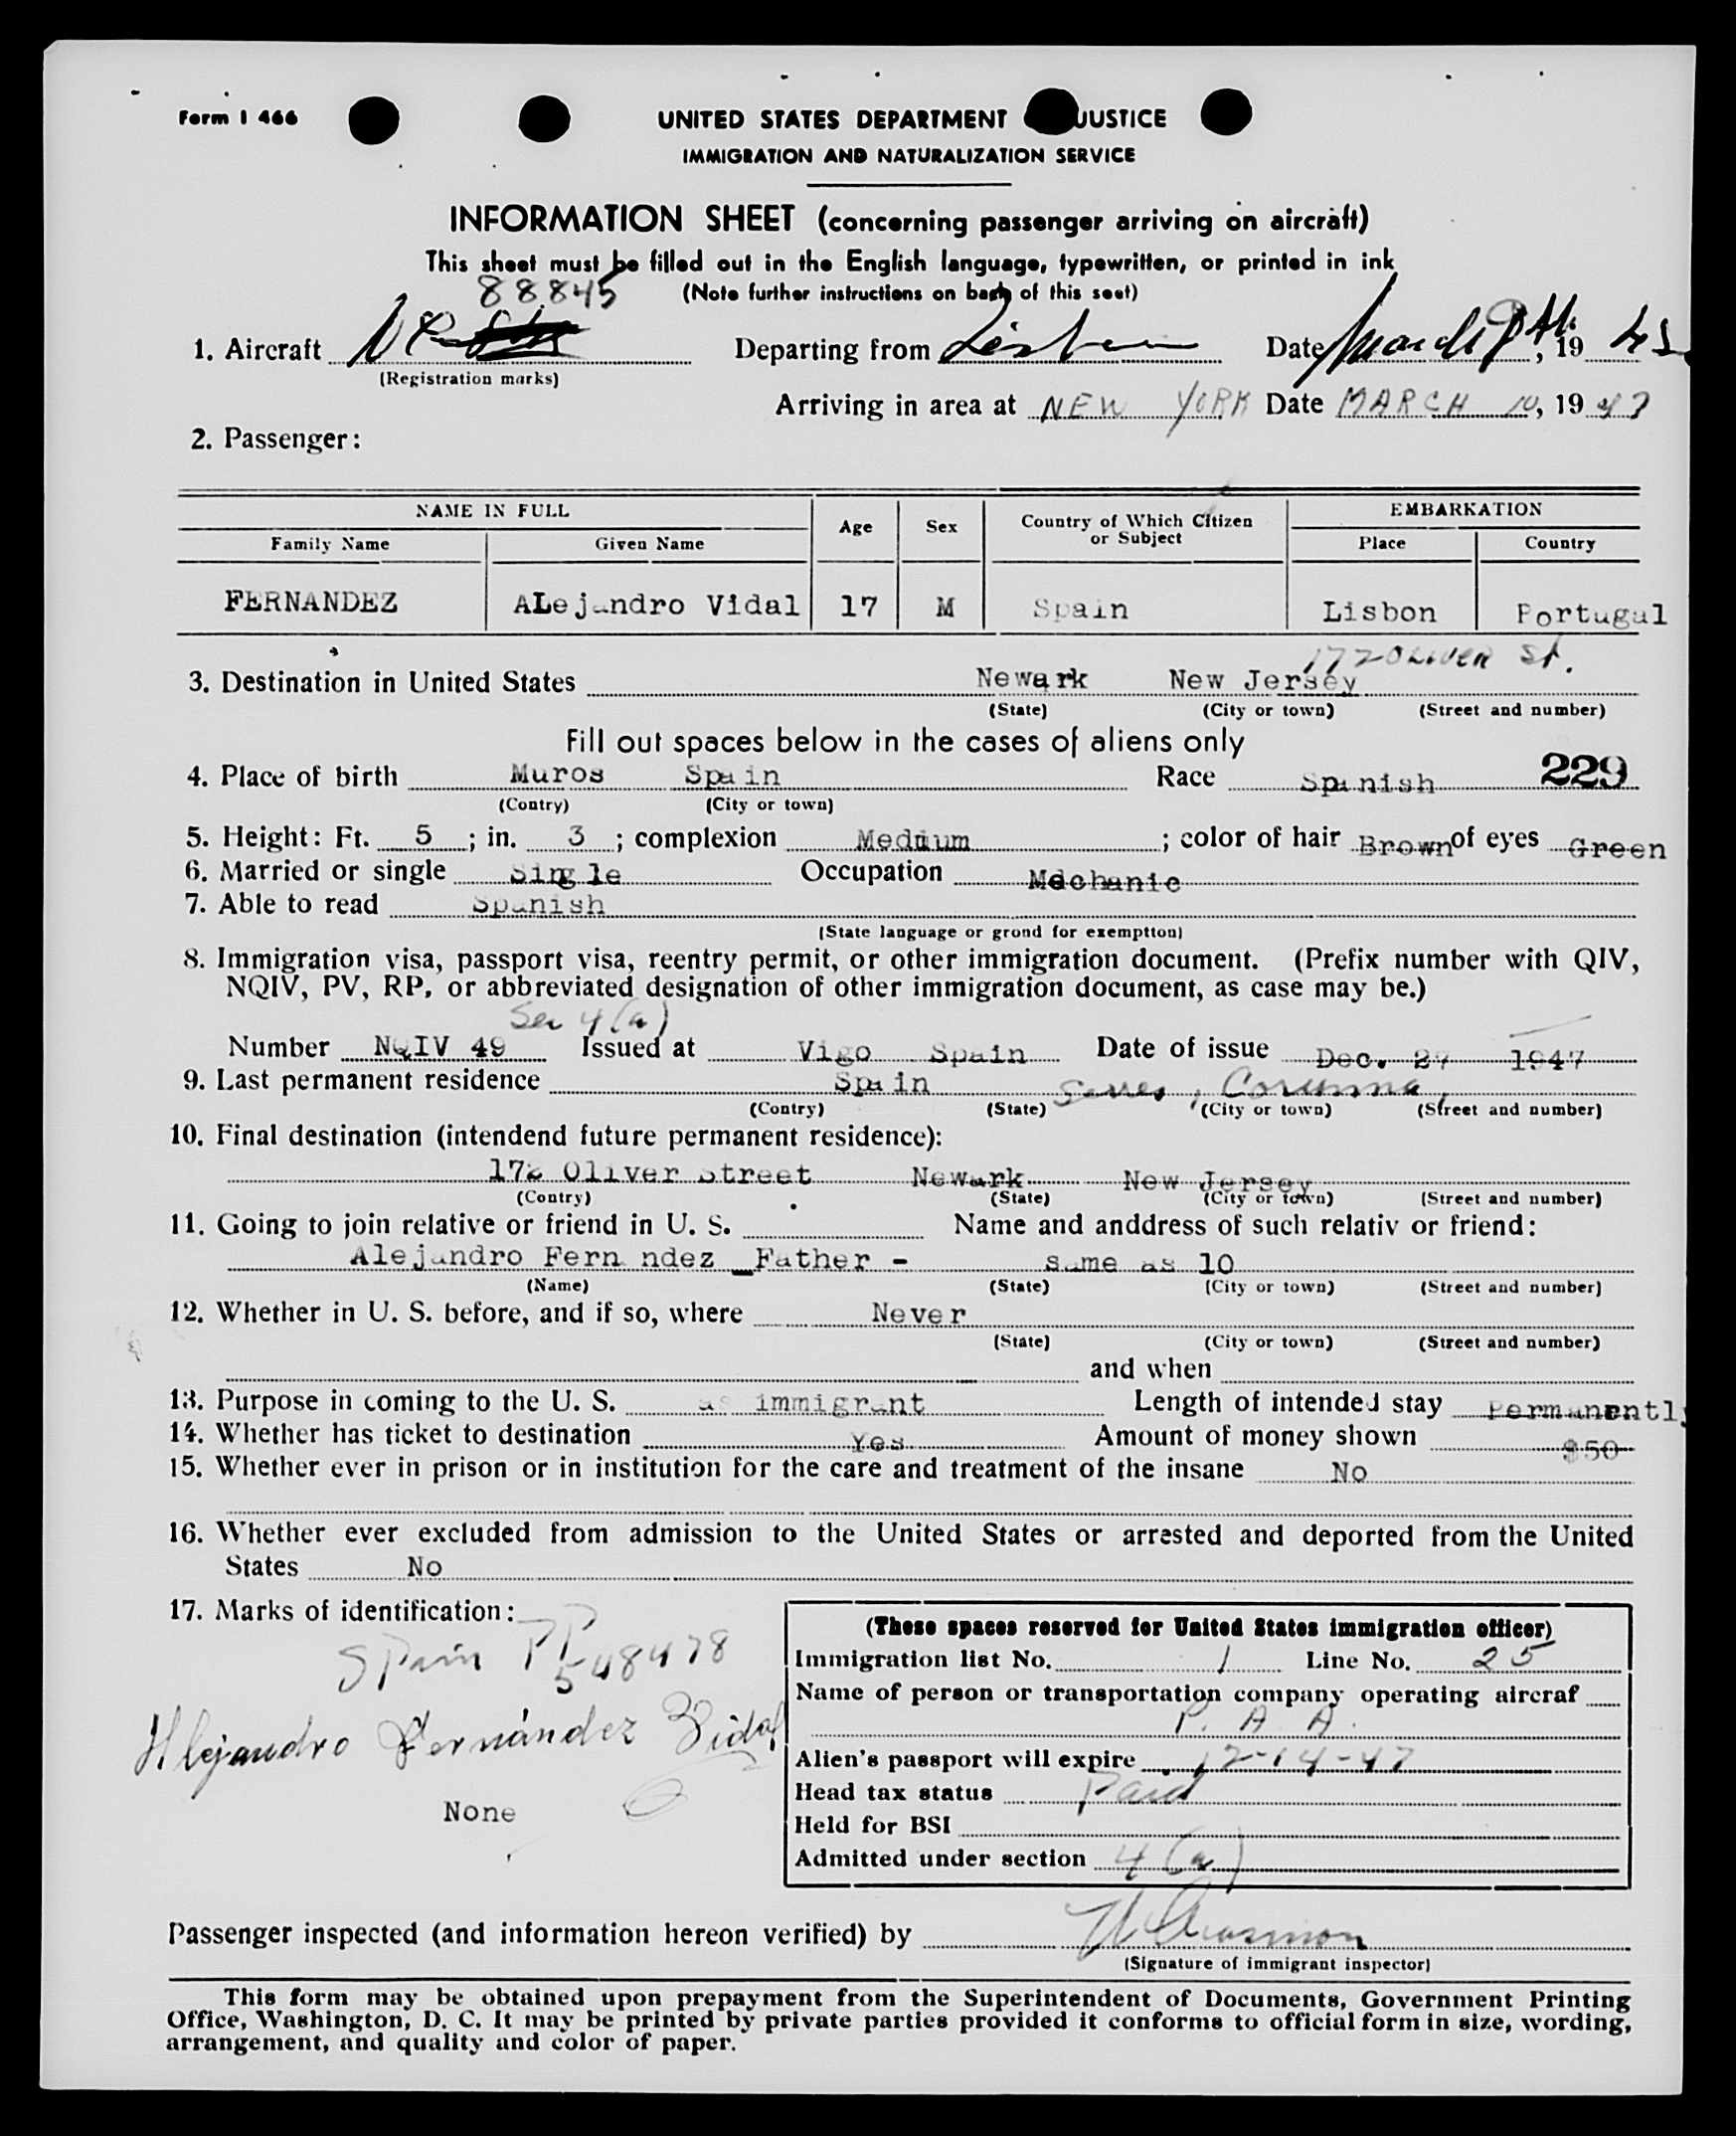 Form I 466
UNITED STATES DEPARTMENT JUSTICE
IMMIGRATION AND NATURALIZATION SERVICE
INFORMATION SHEET (concerning passenger arriving on aircraft)
This sheet must be filled out in the English language, typewritten, or printed in ink
88845 (Note further instructions on back of this seet)
1. Aircraft Departing from Lisbon Date March 9th, 19
(Registration marks)
Arriving in area at NEW YORK Date MARCH 10, 19 47
2. Passenger:
NAME IN FULL Age Sex Country of Which Citizen or Subject EMBARKATION
Family Name Given Name Place Country
FERNANDEZ ALejandro Vidal 17 M Spain Lisbon Portugal
172 OLIVER St.
3. Destination in United States Newark New Jersey
(State) (City or town) (Street and number)
Fill out spaces below in the cases of aliens only
4. Place of birth Muros Spain Race Spanish 229
(Contry) (City or town)
5. Height: Ft. 5 ; in. 3 ; complexion Medium ; color of hair Brown of eyes Green
6. Married or single Single Occupation Mechanic
7. Able to read Spanish
(State language or grond for exemptton)
8. Immigration visa, passport visa, reentry permit, or other immigration document. (Prefix number with QIV,
NQIV, PV, RP, or abbreviated designation of other immigration document, as case may be.)
Sec 4(a)
Number NQIV 49 Issued at Vigo Spain Date of issue Dec. 27 1947
9. Last permanent residence Spain Serres, Corunna
(Contry) (State) (City or town) (Street and number)
10. Final destination (intendend future permanent residence):
172 Oliver Street Newark New Jersey
(Contry) (State) (City or town) (Street and number)
11. Going to join relative or friend in U. S. Name and anddress of such relativ or friend:
Alejandro Fernandez _Father - same as 10
(Name) (State) (City or town) (Street and number)
12. Whether in U. S. before, and if so, where Never
(State) (City or town) (Street and number)
and when
13. Purpose in coming to the U. S. as immigrant Length of intended stay Permanently
14. Whether has ticket to destination Yes Amount of money shown $50
15. Whether ever in prison or in institution for the care and treatment of the insane No
16. Whether ever excluded from admission to the United States or arrested and deported from the United
States No
17. Marks of identification:
Spain PP 548478
Alejandro Fernández Vidal
None
(These spaces reserved for United States immigration officer)
Immigration list No. 1 Line No. 25
Name of person or transportation company operating aircraf
P. A A.
Alien's passport will expire 12-14-47
Head tax status Paid
Held for BSI
Admitted under section 4(a)
Passenger inspected (and information hereon verified) by
(Signature of immigrant inspector)
This form may be obtained upon prepayment from the Superintendent of Documents, Government Printing
Office, Washington, D. C. It may be printed by private parties provided it conforms to official form in size, wording,
arrangement, and quality and color of paper.